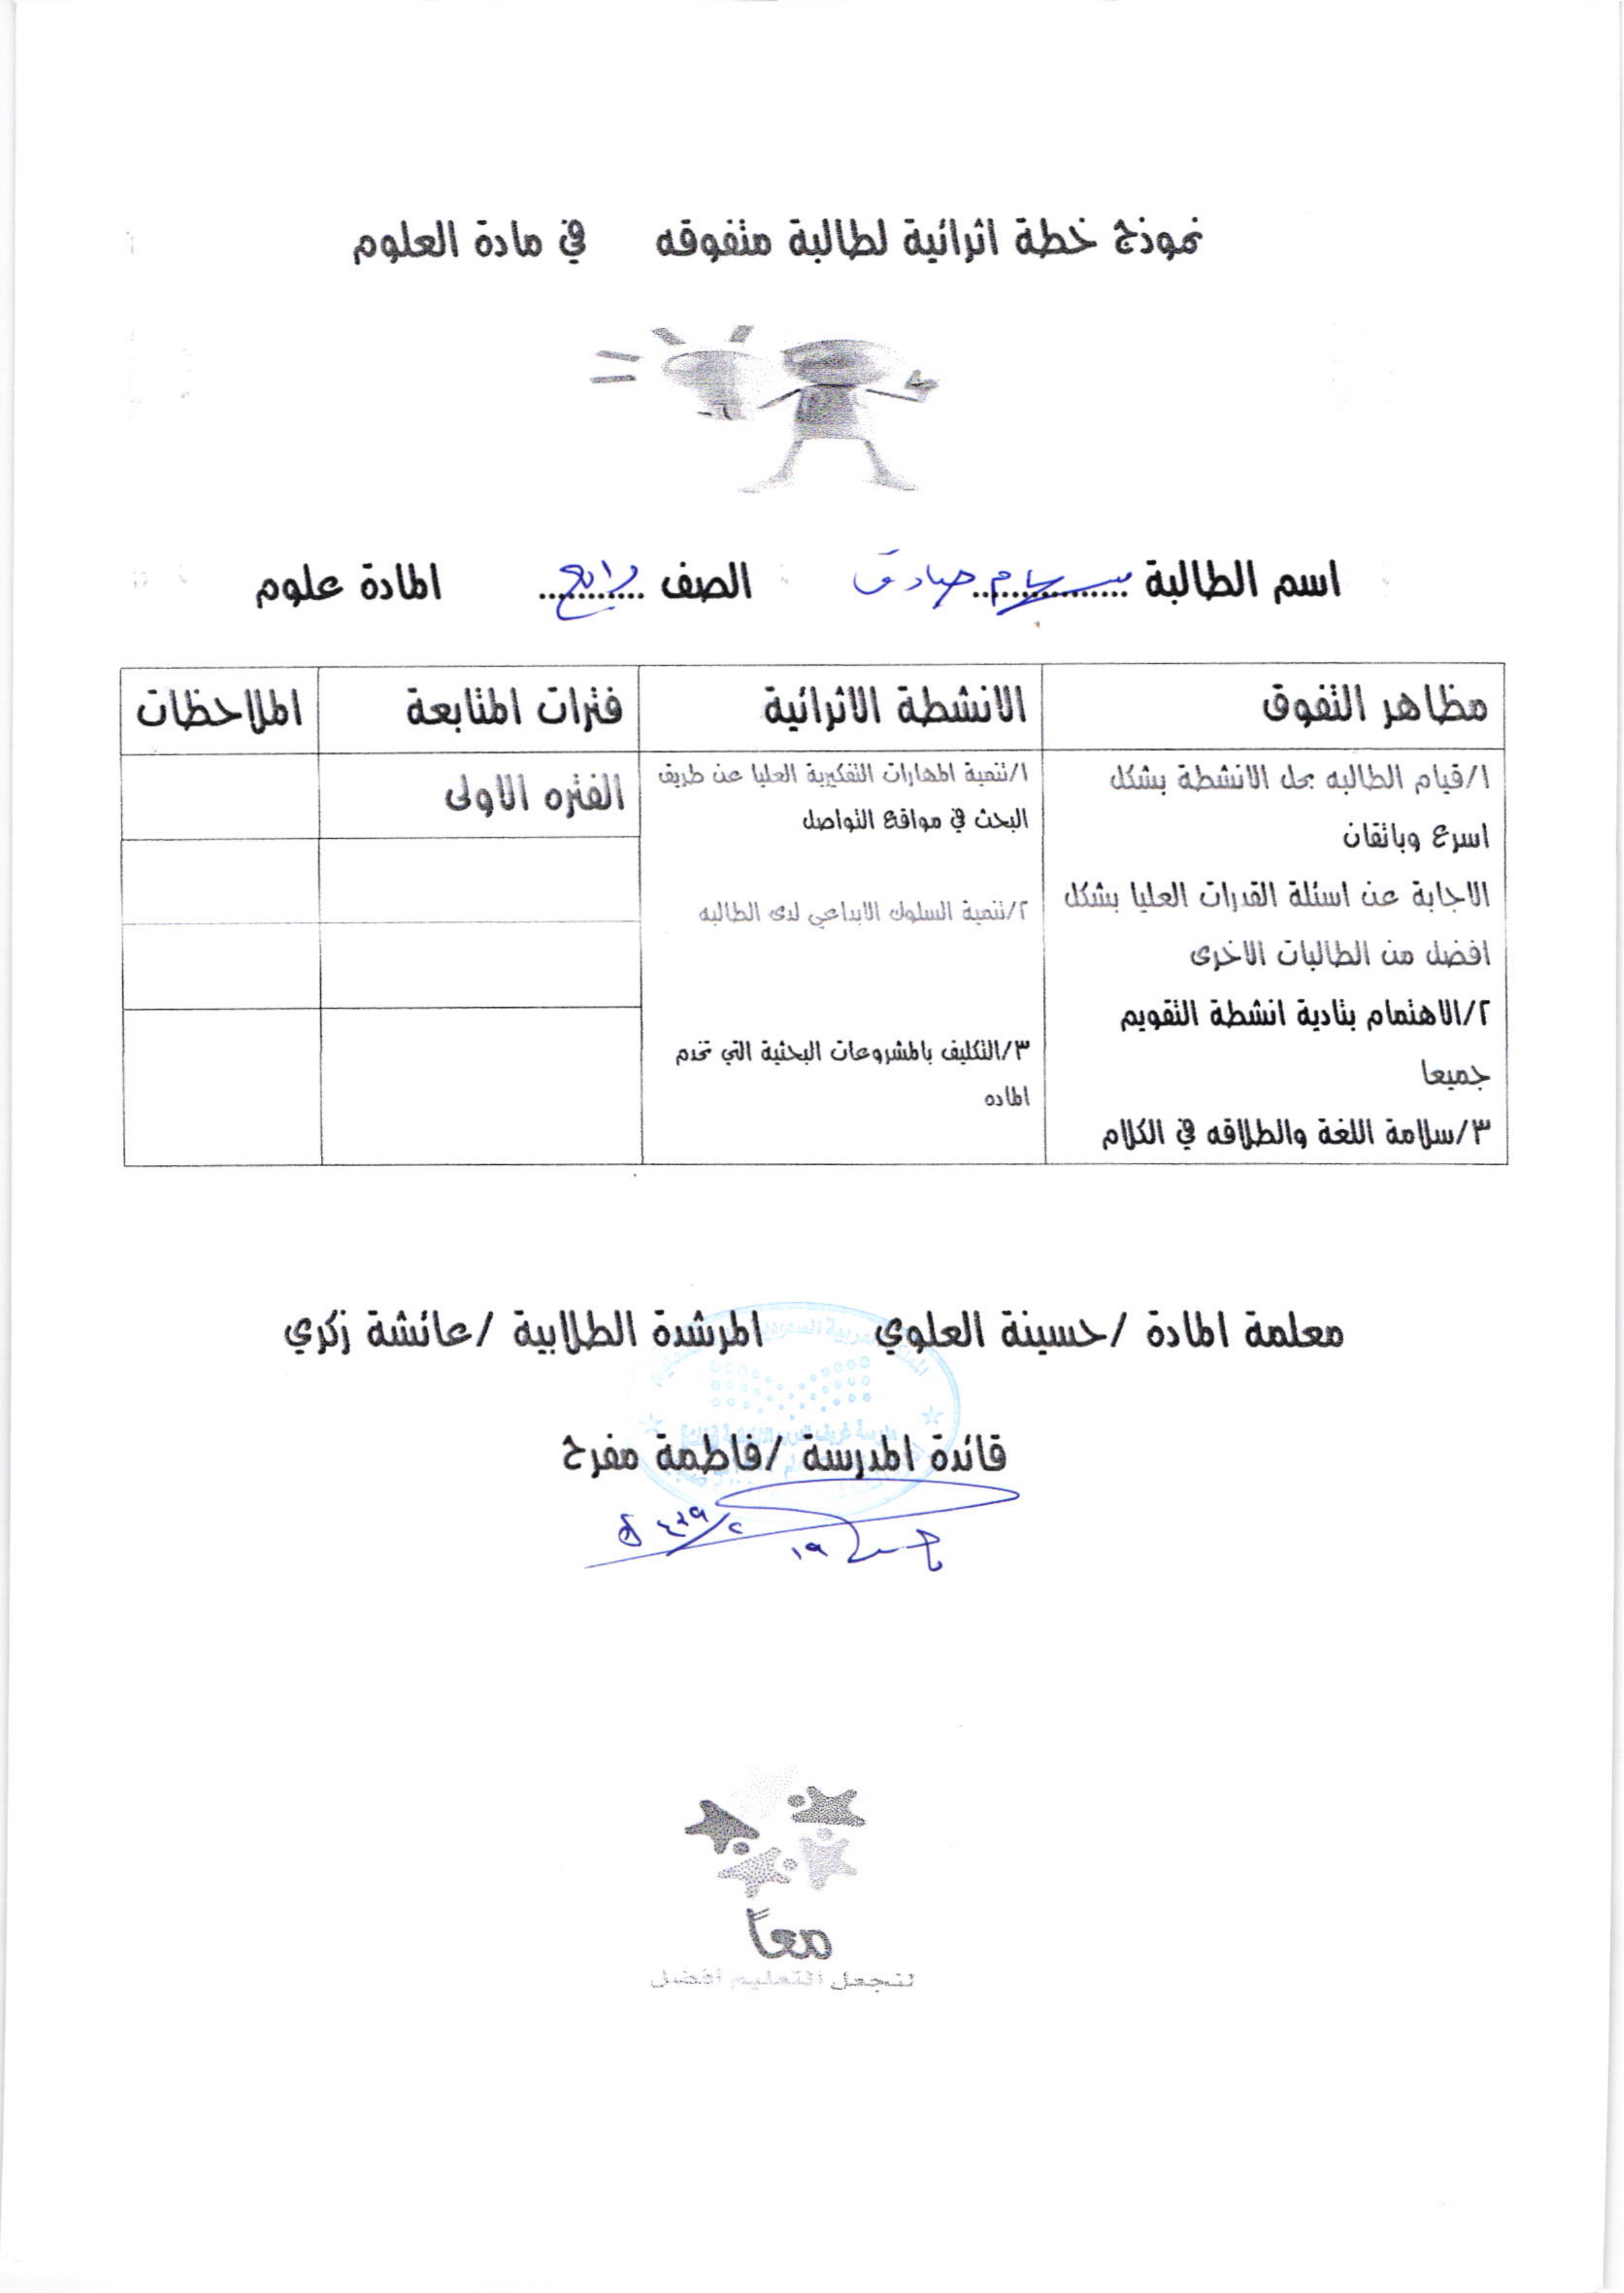 نموذج خطة اثرائية لطالبة متفوقه في مادة العلوم
اسم الطالبة ............... سهام صادق الصف ........... رابع المادة علوم
مظاهر التفوق الانشطة الاثرائية فترات المتابعة الملاحظات
١/قيام الطالبه بحل الانشطة بشكل
اسرع وباتقان
الاجابة عن اسئلة القدرات العليا بشكل
افضل من الطالبات الاخرى
٢/الاهتمام بتادية انشطة التقويم
جميعا
٣/سلامة اللغة والطلاقه في الكلام
١/تنمية المهارات التفكيرية العليا عن طريق
البحث في مواقع التواصل
٢/تنمية السلوك الابداعي لدى الطالبه
٣/التكليف بالمشروعات البحثية التي تخدم
الماده
الفتره الاولى
معلمة المادة /حسينة العلوي المرشدة الطلابية /عائشة زكري
قائدة المدرسة /فاطمة مفرح
معاً
لنجعل التعليم افضل